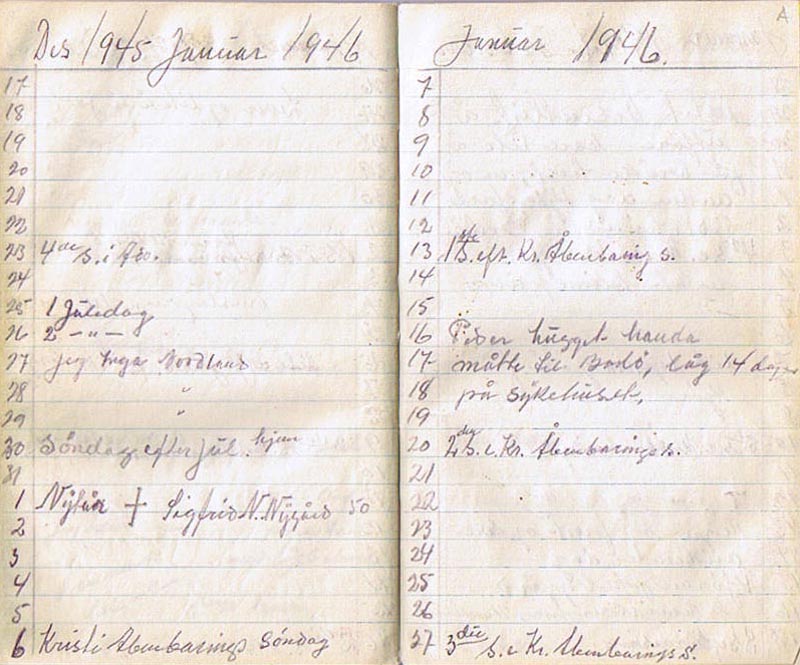 Des 1945 Januar 1946
17
18
19
20
21
22
23 4de S. i Adv.
24
25 1 Juledag
26 2 – " –
27 Jeg Inga Nordland
28 "
29 "
30 Søndag efter Jul. hjem
31
1 Nytår + Sigfrid N. Nygård 50
2
3
4
5
6 Kristi Åbenbarings Søndag
A
Januar 1946.
7
8
9
10
11
12
13 1ste S. eft. Kr. Åbenbaring s.
14
15
16 Peder hugget handa
17 måtte til Bodö, låg 14 dager
18 på sykehuset,
19
20 2den S. e. Kr. Åbenbarings s.
21
22
23
24
25
26
27 3die S. e Kr. Åbenbarings S.